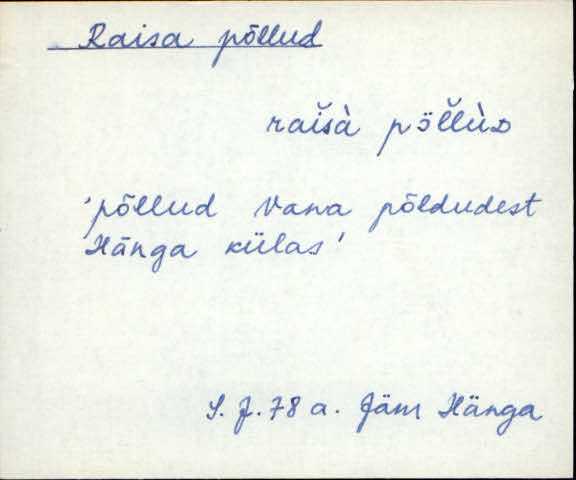 Raisa põllud
raĭsà pöl̆l̆ùᴅ
'põllud vana põldudest
Hänga külas'
S. J. 78 a. Jäm Hänga